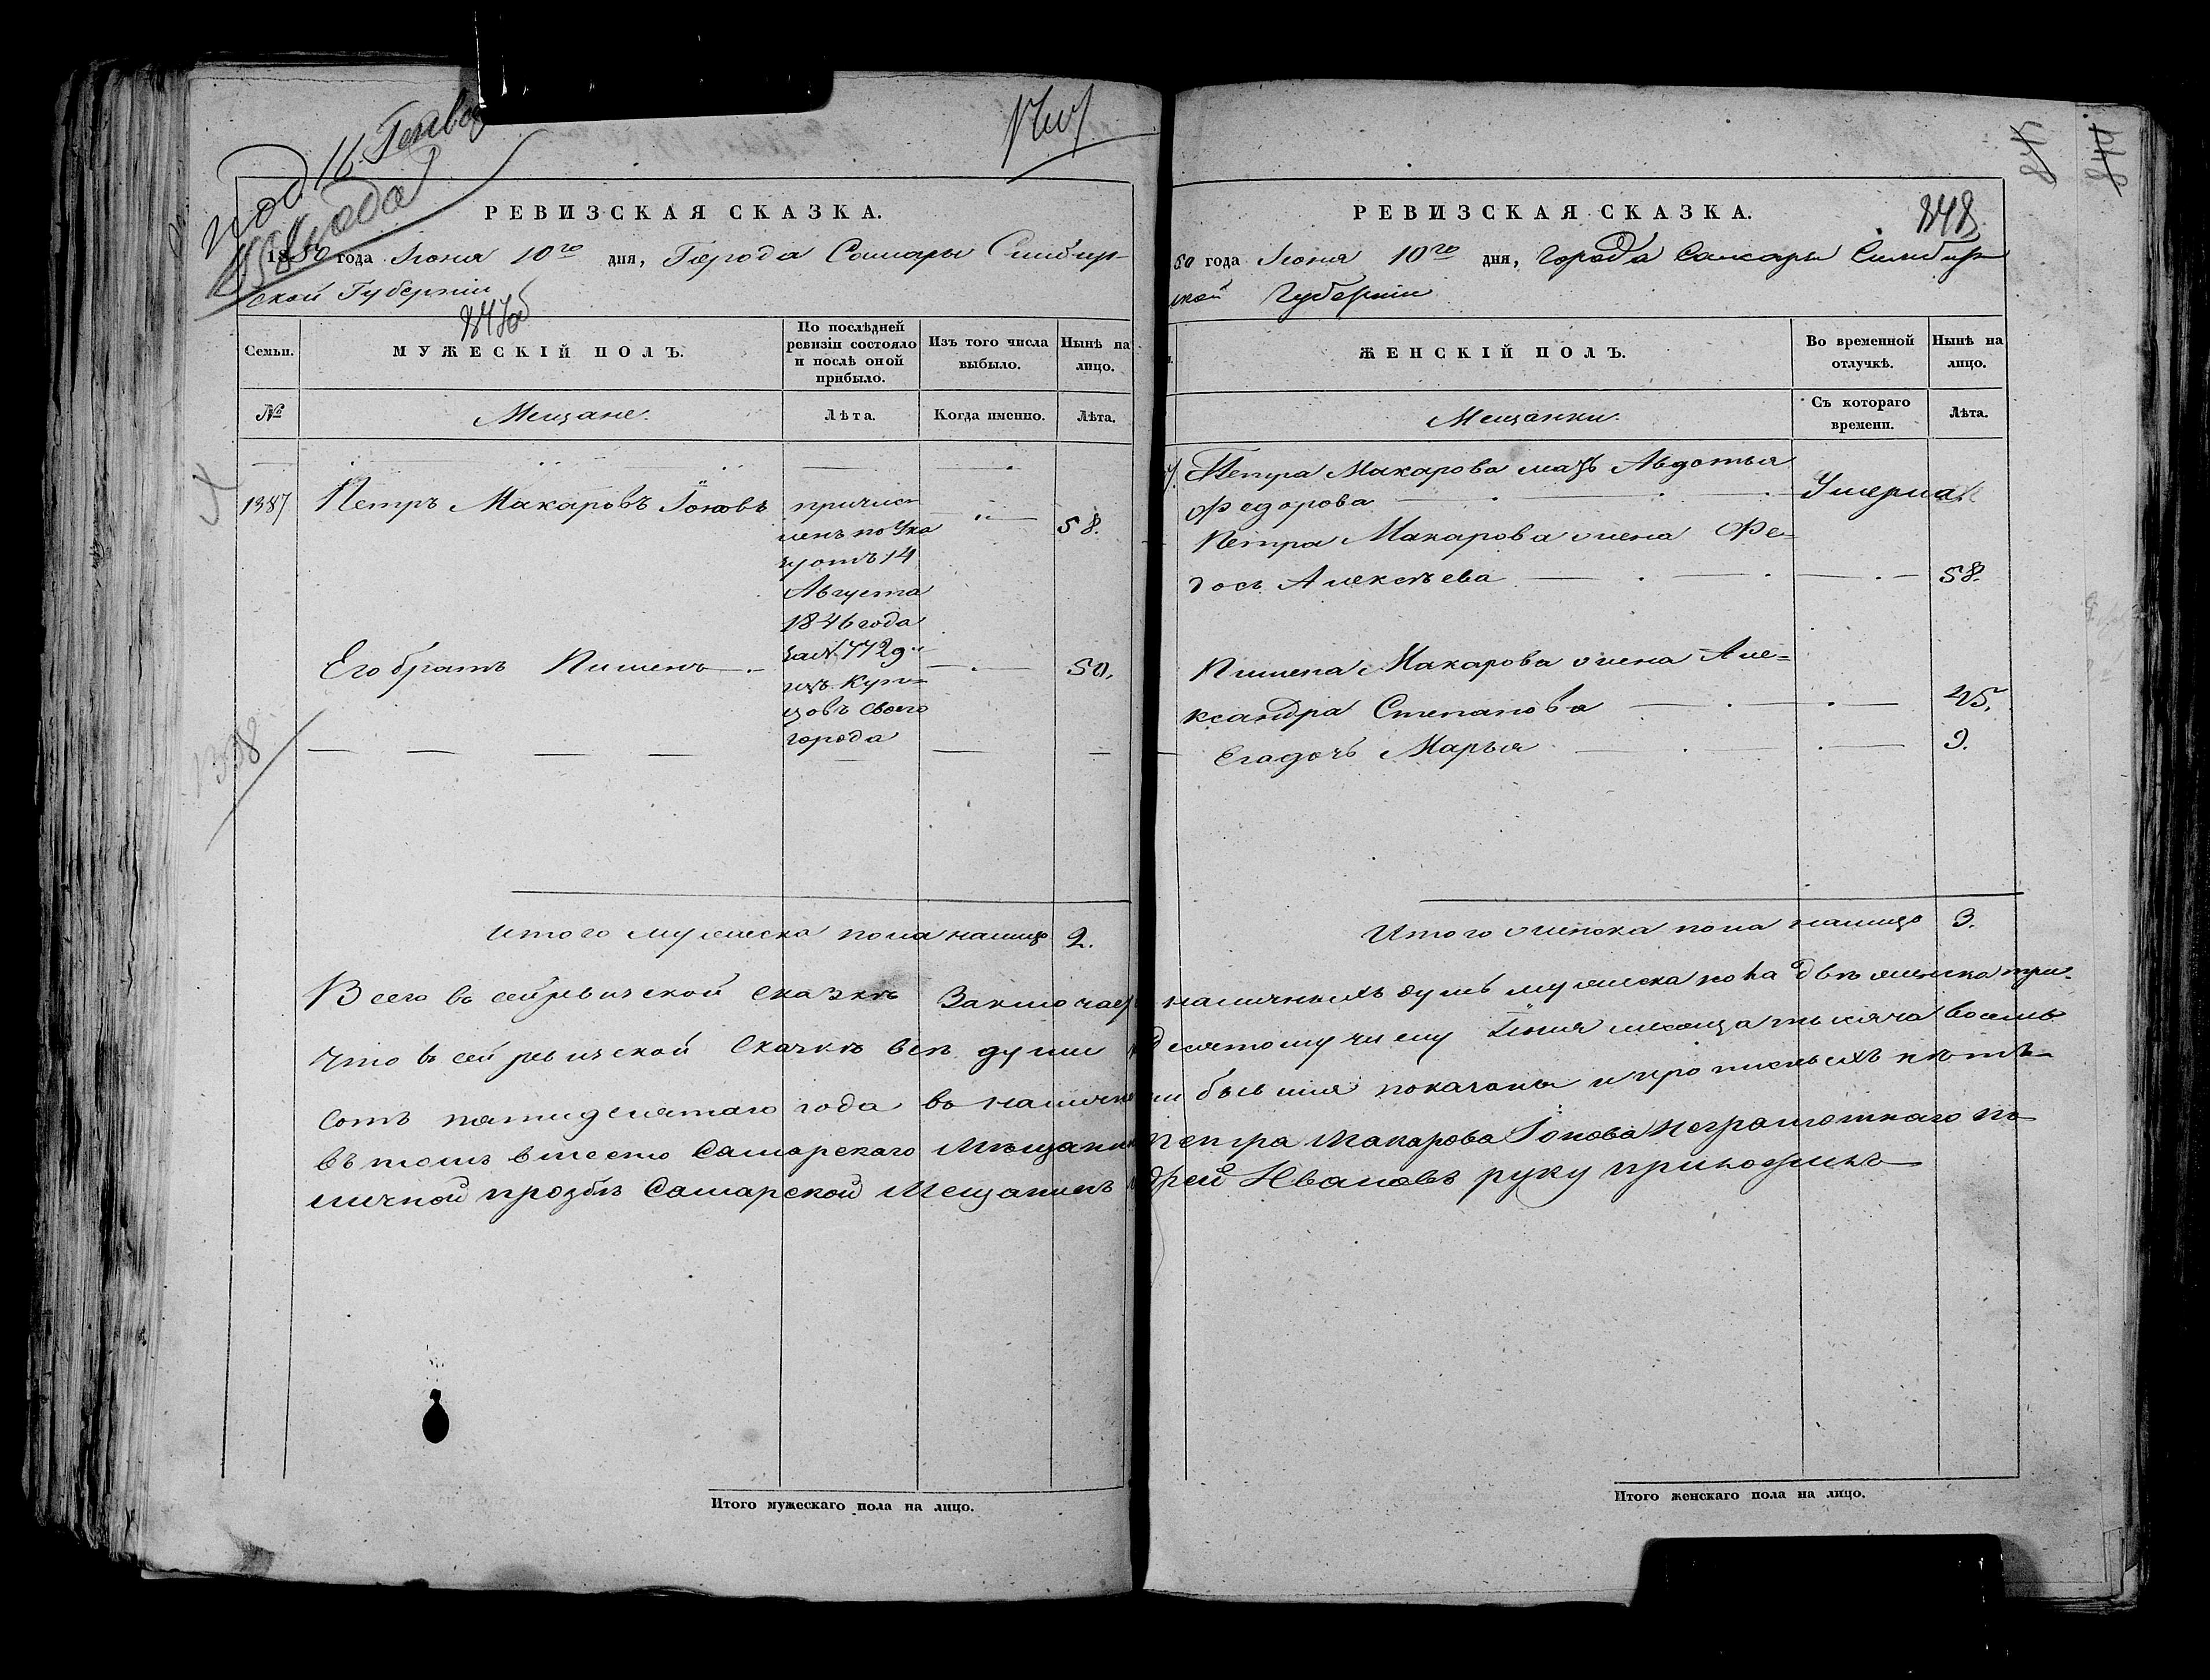 под 16 Генва
1851 года
РЕВИЗСКАЯ СКАЗКА.
1850 года Июня 10го дня, Города Самары Симбир-
ской Губернии
847об
Семьи.
МУЖЕСКІЙ ПОЛЪ.
По послѣдней ревизіи состояло и послѣ оной прибыло.
Изъ того числа выбыло.
Нынѣ на лицо.
№
Мещане.
Лѣта.
Когда именно.
Лѣта.
1387
Петръ Макаровъ Іоновъ
причис-
ленъ по Ука
зу отъ 14
Августа
1846 года
за № 7729
изъ Куп-
цовъ своего
города
58.
Его братъ Пименъ
50.
1338
Итого мужеска пола налицо 2.
РЕВИЗСКАЯ СКАЗКА.
848
845
844
50 года Июня 10го дня, Города Самары Симбир-
ской Губернии
ЖЕНСКІЙ ПОЛЪ.
Во временной отлучкѣ.
Нынѣ на лицо.
Мещанки.
Съ котораго времени.
Лѣта.
Петра Макарова мать Авдотья
Федорова
Умерла
Петра Макарова жена Фе-
дось Алексѣева
58.
Пимена Макарова жена Але-
ксандра Степанова
45.
Ея дочь Марья
9.
Итого женска пола налицо 3.
Всего въ сей ревизской сказкѣ Заключае наличныхъ душъ мужеска пола двѣ женска три.
Что въ сей ревизской Сказкѣ всѣ души десятому числу Июня месяца тысяча восемь
сотъ пятидесятаго года въ налич бывшия показаны и прописныхъ нѣтъ
въ томъ вместо Самарскаго Мѣщани Петра Макарова Іонова Неграмотнаго по
личной прозбѣ Самарской Мещанинъ дрей Ивановъ руку приложилъ
Итого мужескаго пола на лицо.
Итого женскаго пола на лицо.